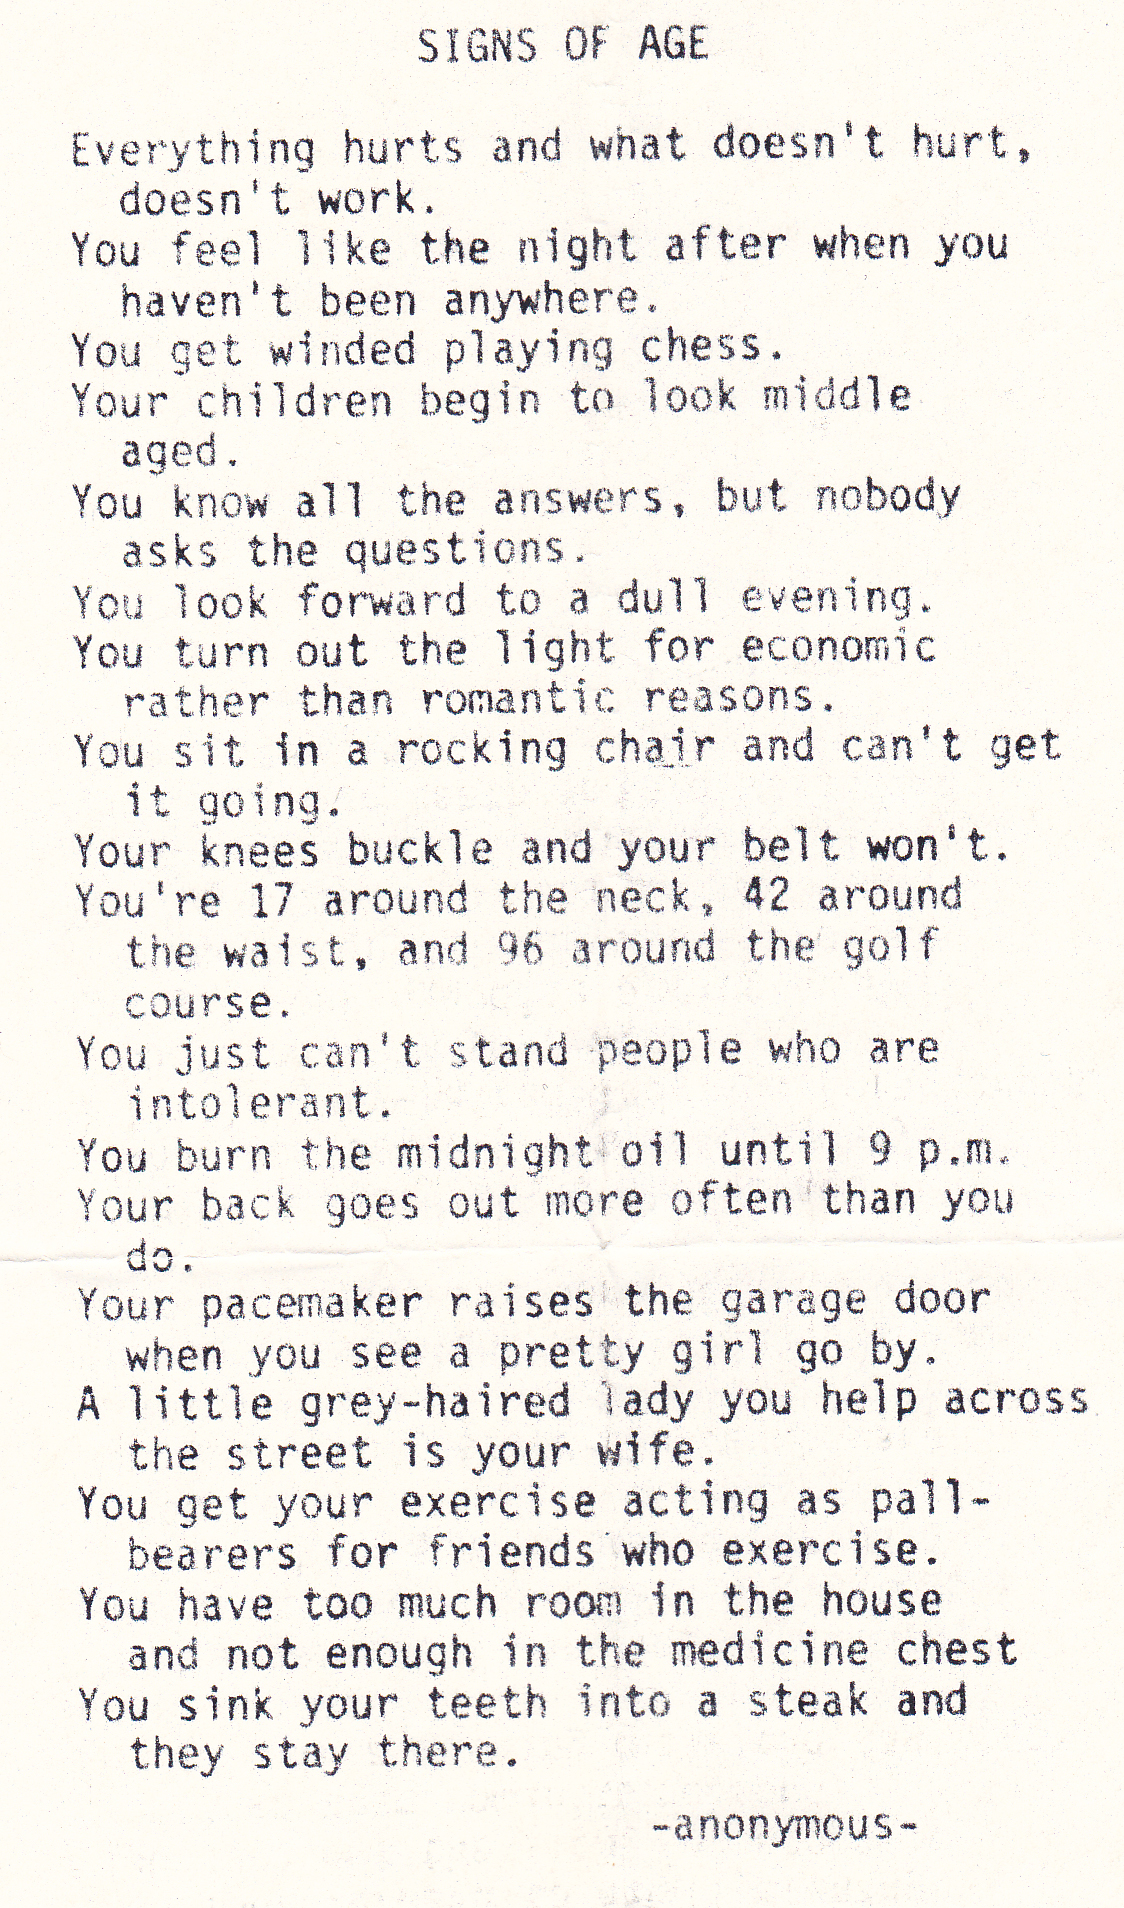 SIGNS OF AGE
Everything hurts and what doesn't hurt,
doesn't work.
You feel like the night after when you
haven't been anywhere.
You get winded playing chess.
Your children begin to look middle
aged.
You know all the answers, but nobody
asks the questions.
You look forward to a dull evening.
You turn out the light for economic
rather than romantic reasons.
You sit in a rocking chair and can't get
it going.
Your knees buckle and your belt won't.
You're 17 around the neck, 42 around
the waist, and 96 around the golf
course.
You just can't stand people who are
intolerant.
You burn the midnight oil until 9 p.m.
Your back goes out more often than you
do.
Your pacemaker raises the garage door
when you see a pretty girl go by.
A little grey-haired lady you help across
the street is your wife.
You get your exercise acting as pall-
bearers for friends who exercise.
You have too much room in the house
and not enough in the medicine chest
You sink your teeth into a steak and
they stay there.
-anonymous-